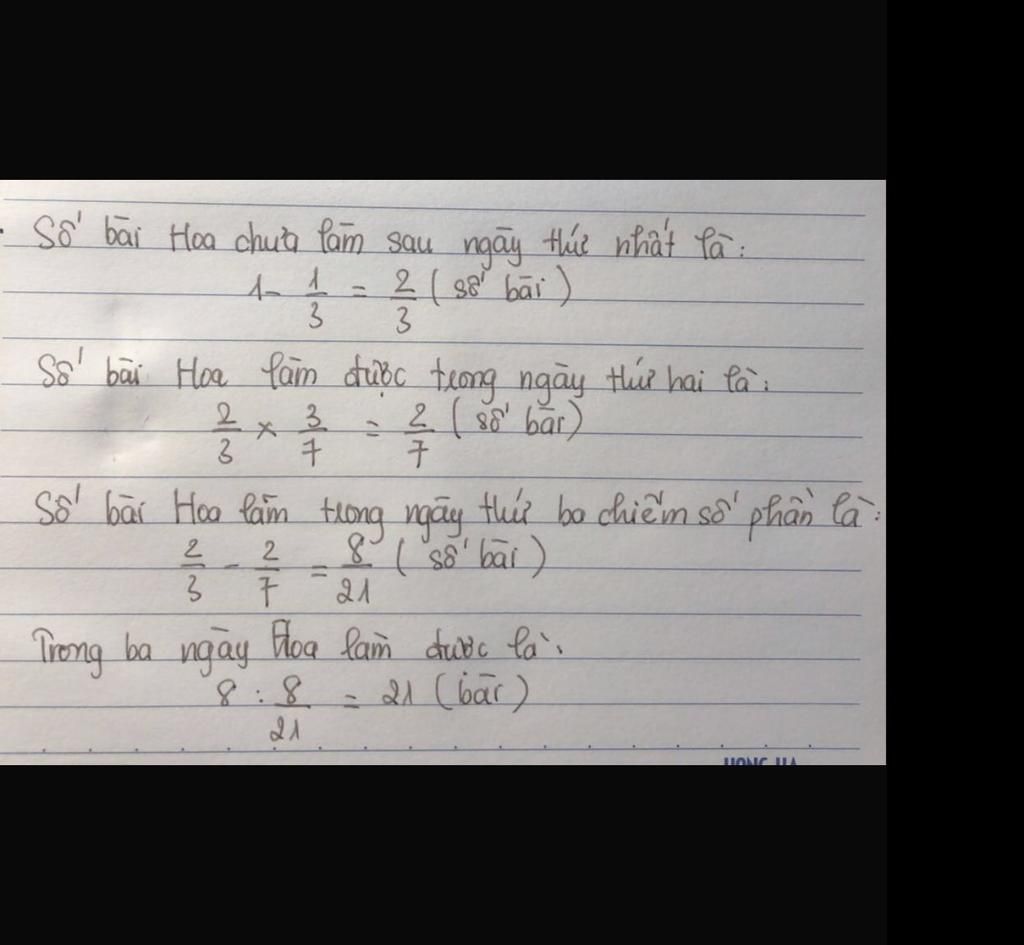 Số bài Hoa chưa làm sau ngày thứ nhất là:
1 - 1/3 = 2/3 (số bài)
Số bài Hoa làm được trong ngày thứ hai là:
2/3 × 3/7 = 2/7 (số bài)
Số bài Hoa làm trong ngày thứ ba chiếm số phần là:
2/3 - 2/7 = 8/21 (số bài)
Trong ba ngày Hoa làm được là:
8 : 8/21 = 21 (bài)